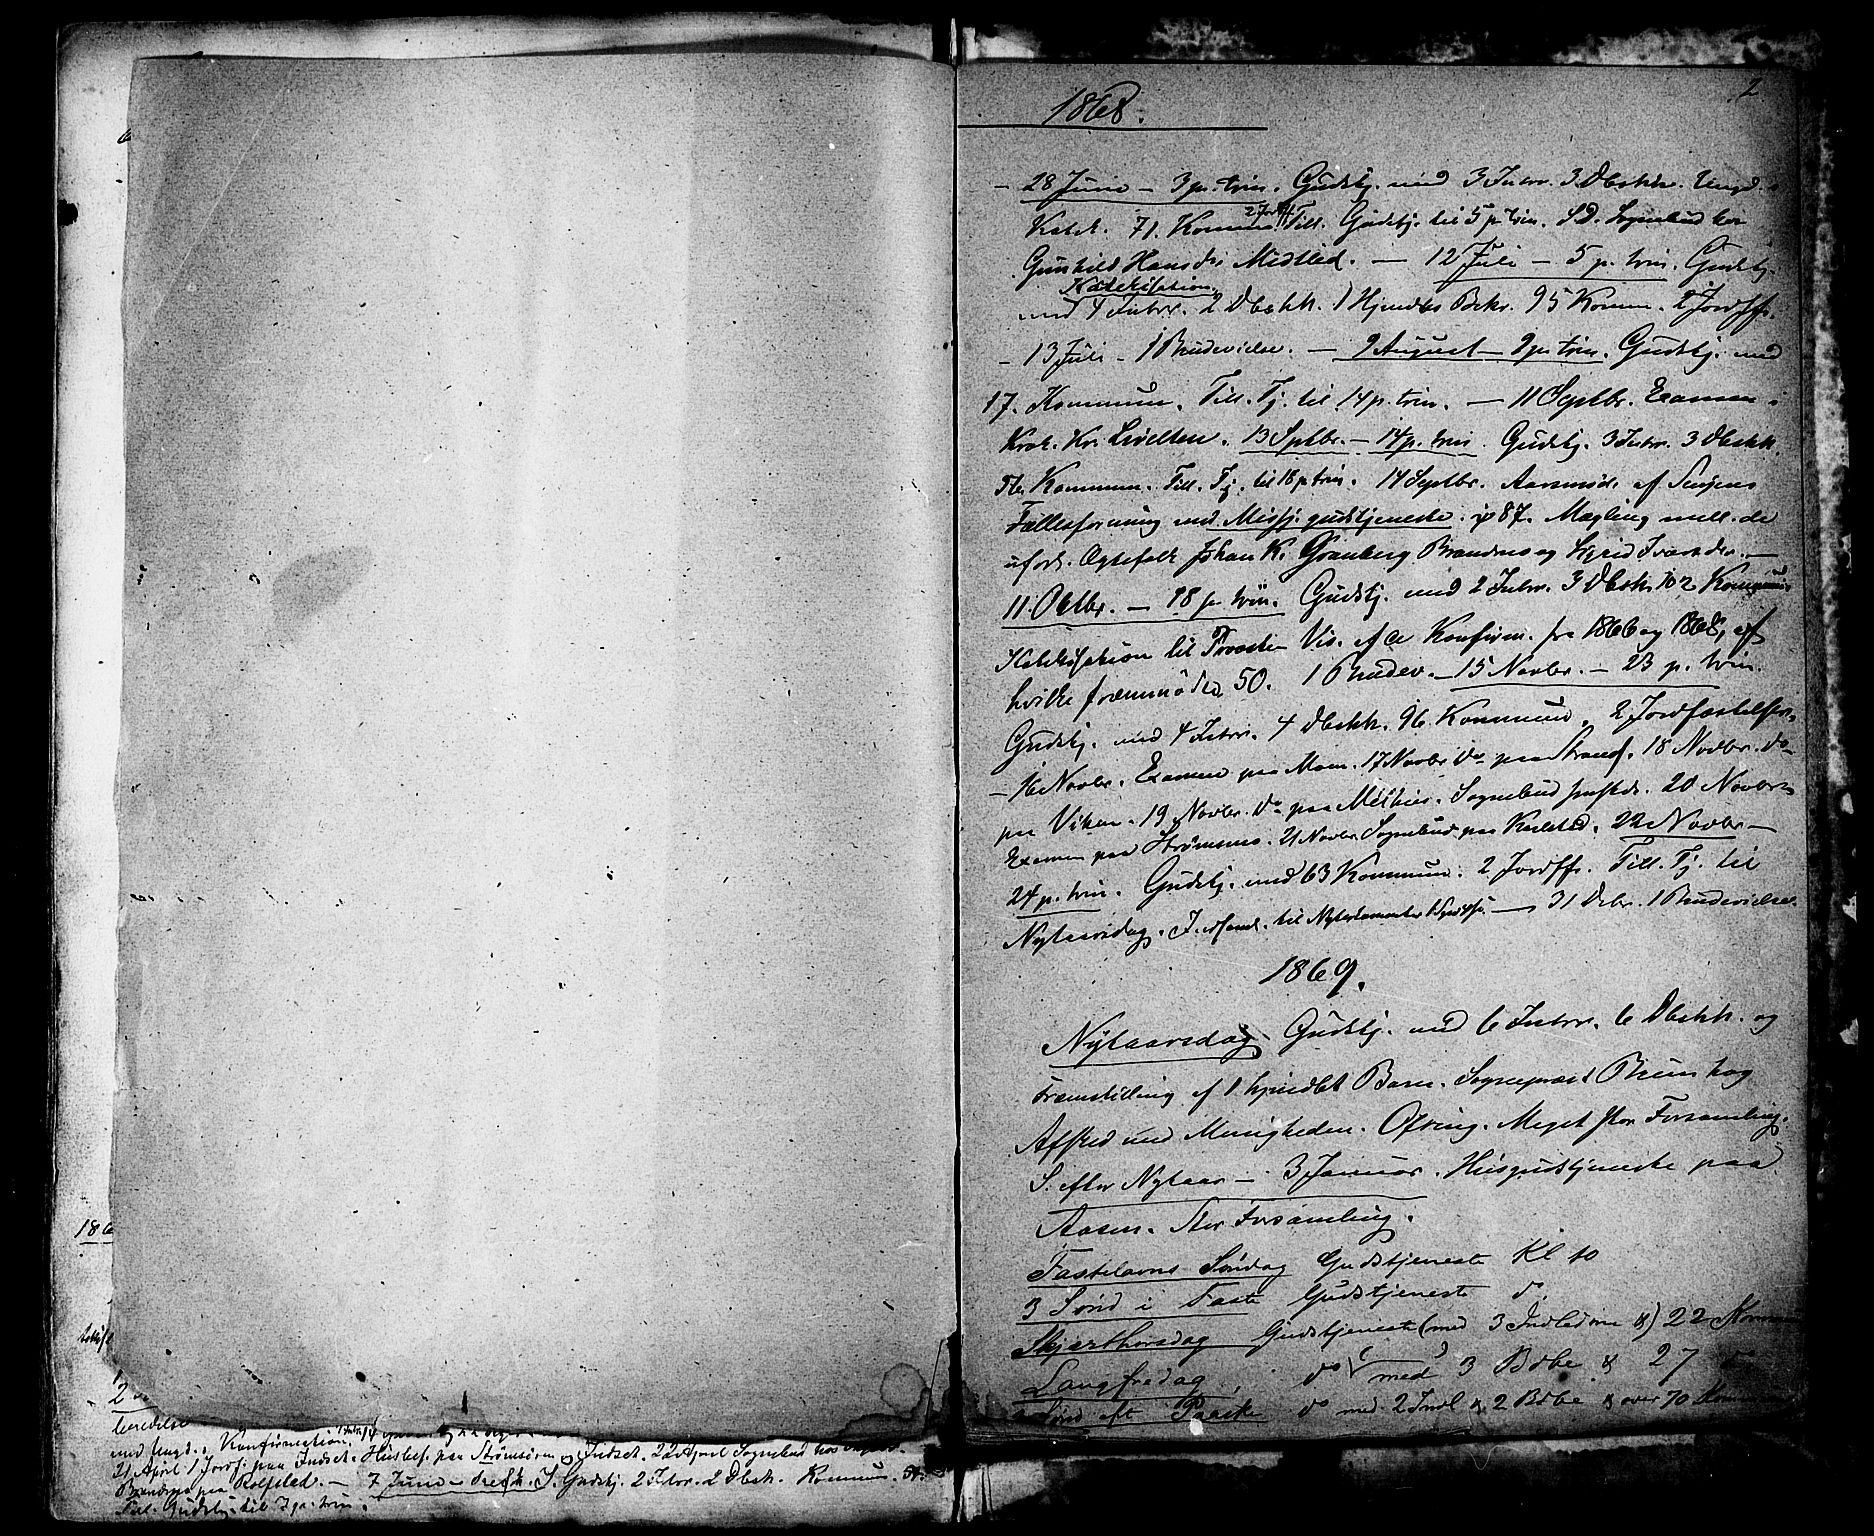 2
1868.
– 28 Juni – 3 p. trin. Gudstj. med 3 Intr. 3 Dbskh. Ungd. i
Katek. 71. Kommun. 2 Jordff. Till. Gudstj. til 5 p. trin. S.D. Sognebud hos
Gunhild Hansdr Midtled. – 12 Juli – 5 p. trin. Gudstj.
Katekisation
med 4 Intr. 2 Dbskh. 1 Hjmdbs Bekr. 95 Komm. 2 Jordff.
– 13 Juli – 1 Brudevielse. – 9 August – 9 p. trin. Gudstj. med
17. Kommun. Till. Tj. til 14 p. trin. – 11 Septbr. Examen i
13 Septbr. – 14 p. trin. Gudstj. 3 Intr. 3 Dbskh.
Kommun. Till. Tj. til 18 p. trin. 14 Septbr. Aarsmøde af Senjens
Fællesforening med Missj. gudstjeneste. 87. Mægling mell. de
Ægtefolk Johan K. Granberg Brandmo og Sigrid Iversdr. –
11 Oktbr. – 18 p. trin. Gudstj. med 2 Intr. 3 Dbskh. 102 Kommun.
Katekisation til Provste Vis. af de Konfirm. fra 1866 og 1868, af
hvilke fremmødte 50. 1 Brudev. – 15 Novbr. – 23 p. trin.
Gudstj. med 4 Intr. 4 Dbskh. 96 Kommun. 2 Jordfæstelser.
– 16 Novbr. Examen paa Moen. 17 Novbr. do paa Strand. 18 Novbr. do
paa Viken. 19 Novbr. do paa Sognebud 20 Novbr.
Examen paa Strømsmo. 21 Novbr. Sognebud paa Karlstad. 22 Novbr. –
24 p. trin. Gudstj. med 63 Kommun. 2 Jordff. Till. Tj. til
Nytaarsdag. Indsaml. til Nytestamenter – 31 Debr. 1 Brudevielse.
1869.
Nytaarsdag. Gudstj. med 6 Intr. 6 Dbskh. og
Fremstilling af 1 hjmdbt Barn. Sognepræst Bruun tog
Afsked med Menigheden. Ofring. Meget stor Forsamling.
S. efter Nytaar – 3 Januar. Husgudstjeneste paa
Aasen. Stor Forsamling.
Fastelavns Søndag Gudstjeneste Kl 10
3 Sønd i Faste Gudstjeneste do
Skjærthorsdag Gudstjeneste (med 3 Indledne &) 22 Kommun
Langfredag do (med) 3 Bdbe & 27 do
Sønd eft Paaske do med 2 Indl & 2 Bdbe & over 70 Kommun
186
2
med Ungd. i Konfirmation.
21 April 1 Jordf. paa Indset. Husbes. paa Strømsøren og Indset. 22 April Sognebud hos
Brandmo paa Rolfsted. – 7 Juni – S. Gudstj. 2 Intr. 2 Dbsk. Kommun. 54.
Till. Gudstj. til 3 p. trin.